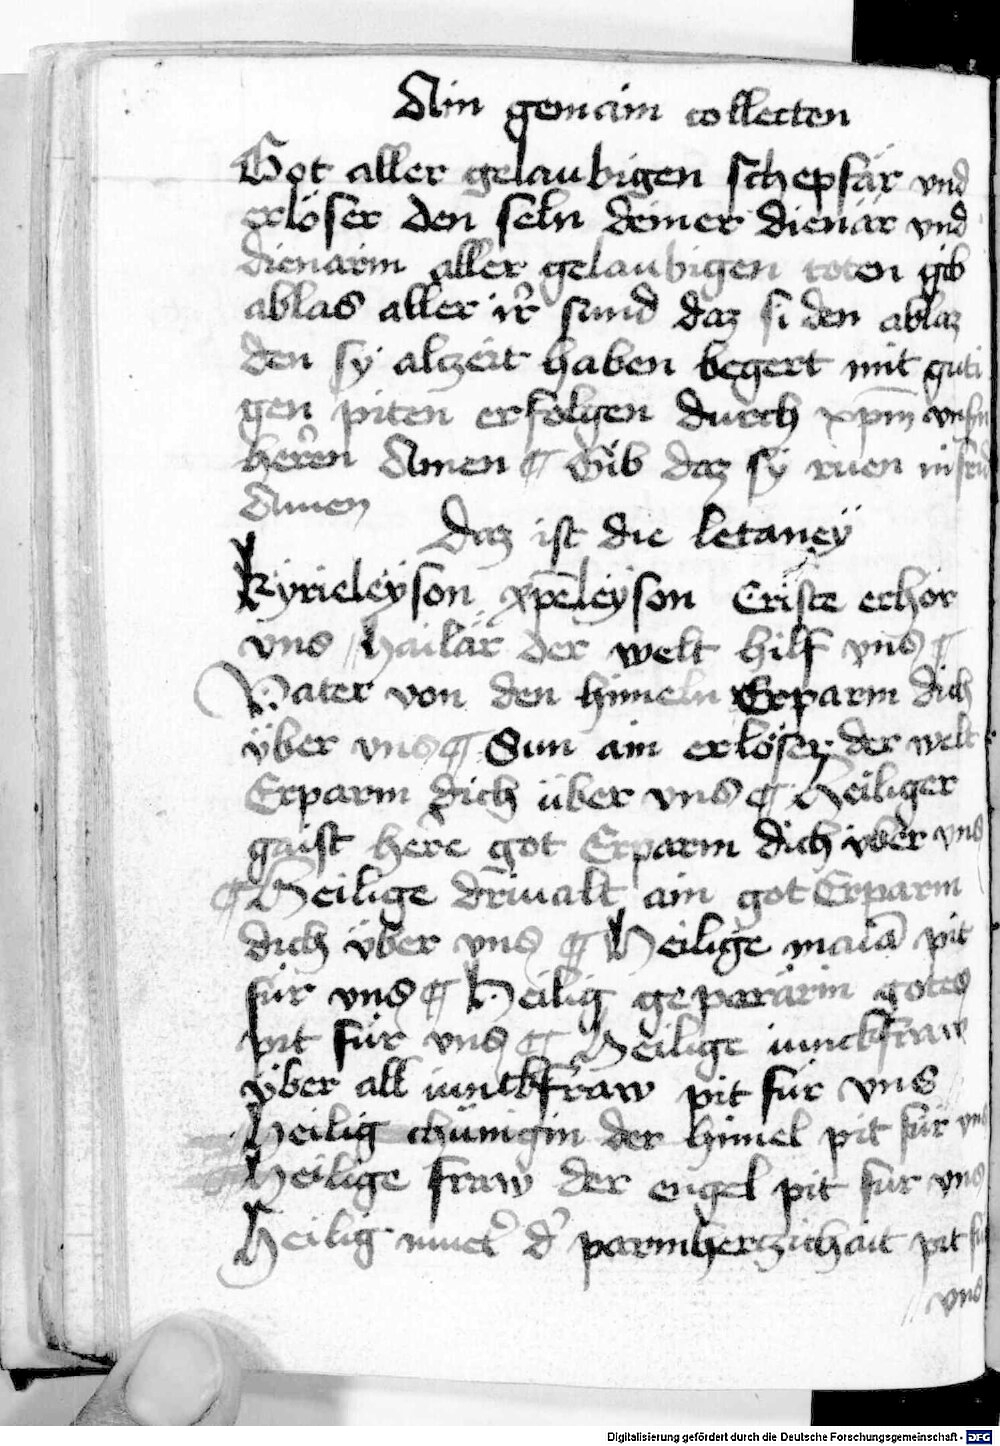 Ain gemain collecten
Got aller gelaubigen schepfär vnd
erlöser den seln deiner dienär vnd
dienärin aller gelaubigen toten gib
ablas aller ir̃ sünd daz si den ablaz
den sy alczeit haben begert mit guti
gen piten erfolgen durch xp̄m vnsrn
herr̃en Amen ¶ Gib daz sy ruen in frid
Amen
Daz ist die letaneÿ
Kyrieleÿson xp̄eleÿson Criste erhör
vns hailär der welt hilf vns ¶
Vater von den himeln Erparm dich
über vns ¶ Sun ain erlöser der welt
Erparm dich über vns ¶ Heiliger
gaist here got Erparm dich über vns
¶ Heilige driualt ain got Erparm
dich über vns ¶ Heilige maria pit
für vns ¶ Heilig geparärin gotes
pit für vns ¶ Heilige iunckfraw
über all iunckfraw pit für vns
Heilig chünigin der himel pit für vns
Heilige fraw der engel pit für vns
Heilig muet̃ d̃ parmherczichait pit für
vns
Digitalisierung gefördert durch die Deutsche Forschungsgemeinschaft - DFG